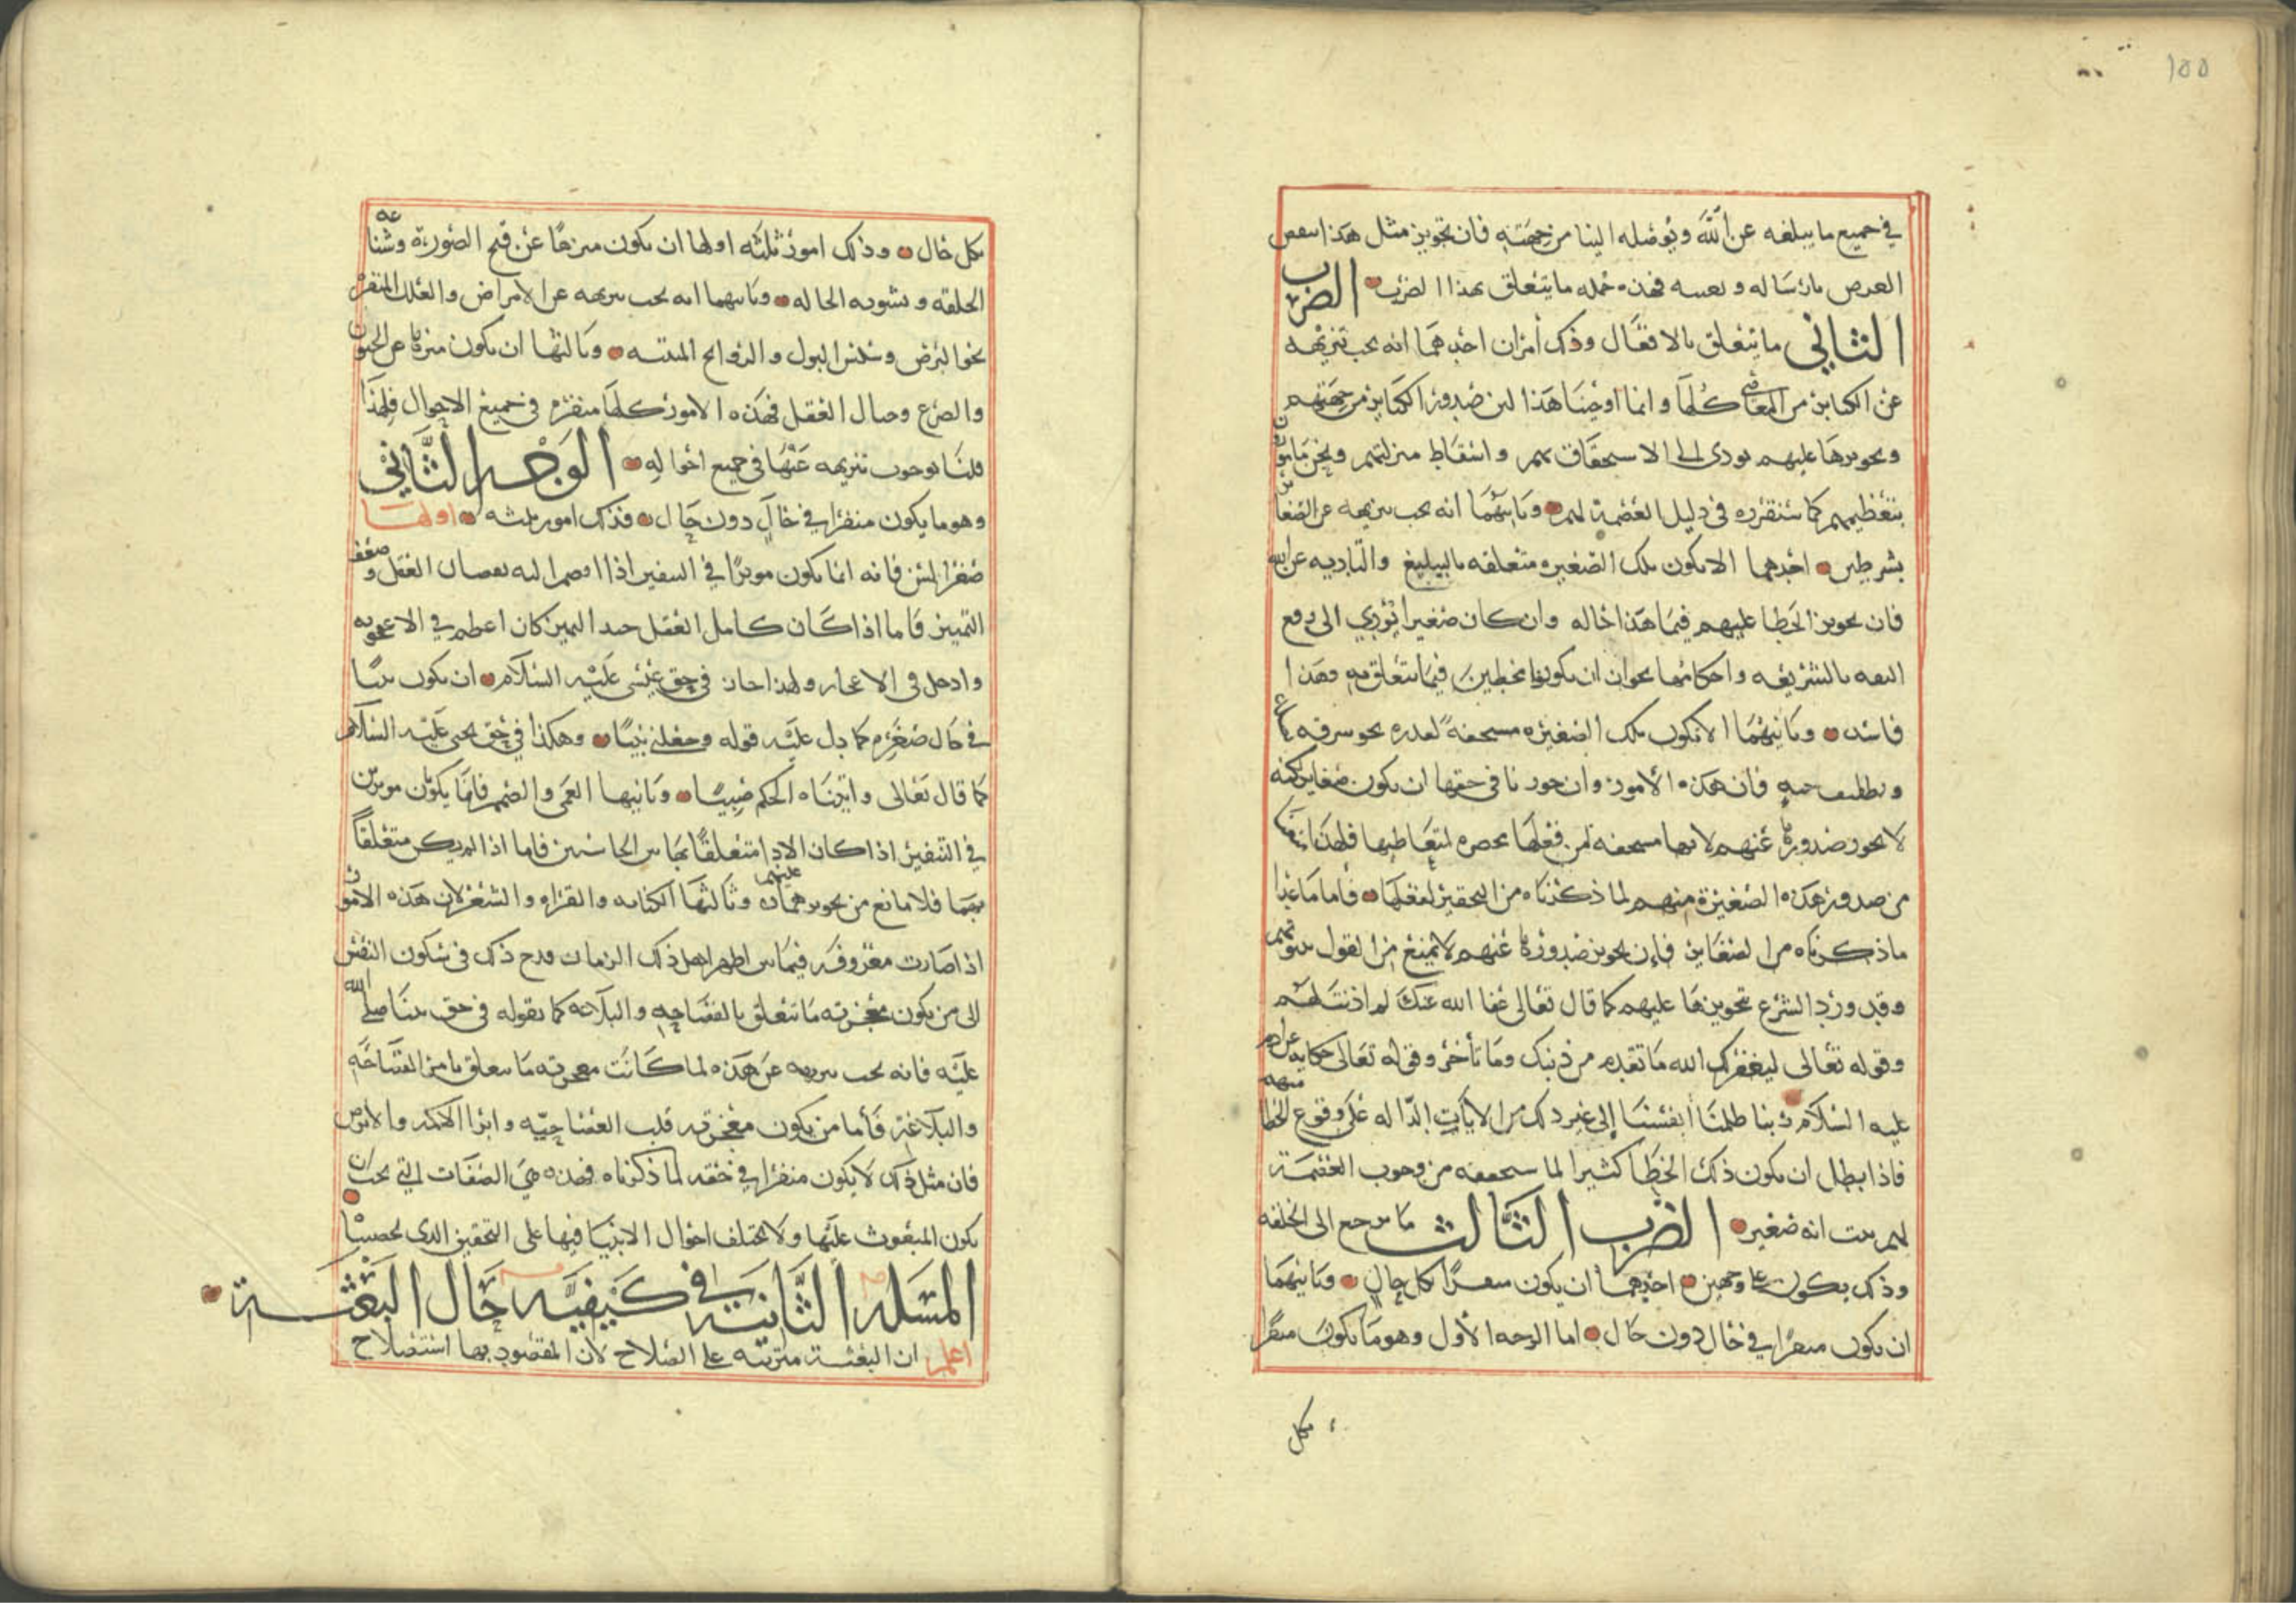 ١٥٥
في جميع ما يبلغه عن الله ويوصله الينا من جهته فان تجويز مثل هذا ينقض
الغرض بارساله وبعثه فهذه جمله ما يتعلق بهذا الضرب الضرب
الثاني ما يتعلق بالافعال وذلك امران احدهما انه يجب تنزيهه
عن الكبائر من المعاصي كلها وانما اوجبنا هذا لان صدور الكبائر من جهتهم
وتجويزها عليهم يودي الى الاستخفاف بهم واسقاط منزلتهم ونحن مامورون
بتعظيمهم كما سنقرره في دليل العصمة لهم وثانيهما انه يجب تنزيهه عن الصغائر
بشرطين احدهما الا تكون تلك الصغيره متعلقه بالتبليغ والتاديه عن الله
فان تجويز الخطا عليهم فيما هذا حاله وان كان صغيرا يودي الى رفع
الثقه بالشريعه واحكامها بجواز ان يكونوا مخطين فيما يتعلق به وهذا
فاسد وثانيهما الا تكون تلك الصغيره مسخفة لقدره نحو سرقه
وتطفيف حبه فان هذه الامور وان جوزنا في حقها ان تكون صغاير لكنه
لا يجوز صدورها عنهم لانها مسخفه لمن فعلها محقره لمتعاطيها فلهذا منعنا
من صدور هذه الصغيرة منهم لما ذكرناه من التحقير لفعلها فاما ما عدا
ما ذكرناه من الصغاير فان تجويز صدورها عنهم لا يمنع من القول بنبوتهم
وقد ورد الشرع بتجويزها عليهم كما قال تعالى عفا الله عنك لم اذنت لهم
وقوله تعالى ليغفر لك الله ما تقدم من ذنبك وما تأخر وقوله تعالى حكاية عن ادم
عليه السلام ربنا ظلمنا أنفسنا إلى غير ذلك من الايات الداله على وقوع الخطا منهم
فاذا بطل ان يكون ذلك الخطا كثيرا لما سنحققه من وجوب العصمة
لهم ثبت انه صغير الضرب الثالث ما يرجع الى الخلقه
وذلك يكون على وجهين احدهما ان يكون منفرًا بكل حال وثانيهما
ان يكون منفرًا في حال دون حال اما الوجه الاول وهو ما يكون منفرًا
بكل
بكل حال وذلك امور ثلثه اولها ان يكون منزها عن قبح الصورة وشناعه
الخلقه وتشويه الحاله وثانيهما انه يجب تنزيهه عن الامراض والعلل المنفره
نحو البرص وسلس البول والروايح المنتنه وثالثها ان يكون منزها عن الجنون
والصرع وخبال العقل فهذه الامور كلها منفره في جميع الاحوال فلهذا
قلنا بوجوب تنزيهه عنها في جميع احواله الوجه الثاني
وهو ما يكون منفرا في حال دون حال فذلك امور ثلثه اولها
صغر السن فانه انما يكون موثرًا في التنفير اذا انضم اليه نقصان العقل وضعف
التمييز فاما اذا كان كامل العقل جيد التمييز كان اعظم في الاعجوبه
وادخل في الاعجاز ولهذا جاز في حق عيسى عليه السلام ان يكون نبيًا
في حال صغره كما دل عليه قوله وجعلني نبيًا وهكذا في حق يحيى عليه السلام
كما قال تعالى واتيناه الحكم صبيًا وثانيها العمى والصمم فانما يكونان موثرين
في التنفير اذا كان الادا متعلقًا بهاتين الحاستين فاما اذا لم يكن متعلقًا
بهما فلا مانع من تجويزهما عليهم وثالثها الكتابه والقراه والشعر لان هذه الامور
اذا صارت معروفه فيما بين اظهر اهل ذلك الزمان قدح ذلك في سكون النفس
الى من يكون معجزته ما تتعلق بالفصاحه والبلاغه كما نقوله في حق نبينا صلى الله
عليه فانه يجب تنزيهه عن هذه لما كانت معجزته ما يتعلق بامر الفصاحه
والبلاغة فأما من يكون معجزته قلب العصا حيه وابرا الاكمه والابرص
فان مثل ذلك لا يكون منفرًا في حقه لما ذكرناه فهذه هي الصفات التي يجب ان
يكون المبعوث عليها ولا يختلف احوال الانبيا فيها على التحقيق الذي لخصناه
المسله الثانيه في كيفيه حال البعثة
اعلم ان البعثة مترتبه على الصلاح لان المقصود بها استصلاح